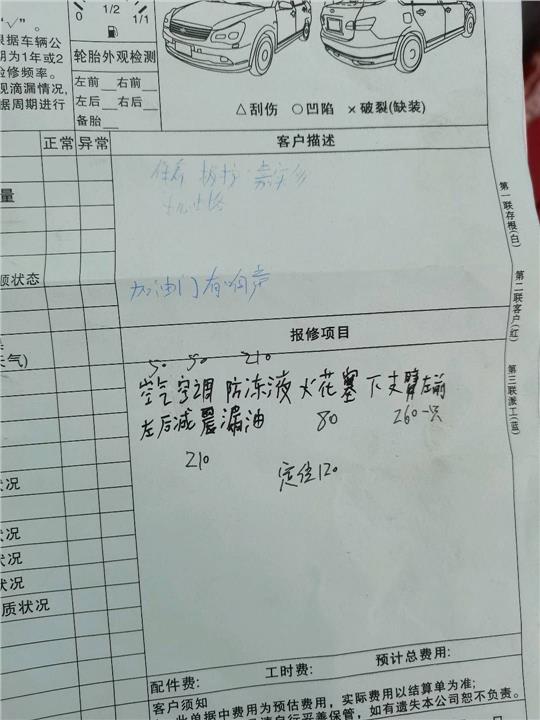 0 1/2 1/1
“√”。
根据车辆公
期为1年或2
检修频率。
现滴漏情况,
据周期进行
轮胎外观检测
左前__右前__
左后__右后__
备胎__
△刮伤 ○凹陷 ×破裂(缺装)
正常 异常
客户描述
加油门有响声
量
顺状态
天气)
报修项目
50 50 210
空气 空调 防冻液 火花塞 下支臂左前
左后减震漏油 80 260一只
210
定位120
状况
状况
状况
状况
质状况
配件费: 工时费: 预计总费用:
客户须知
此单据中费用为预估费用，实际费用以结算单为准;
请自行妥善保管，如有遗失本公司恕不负责。
第一联存根(白)
第二联客户(红)
第三联派工(蓝)